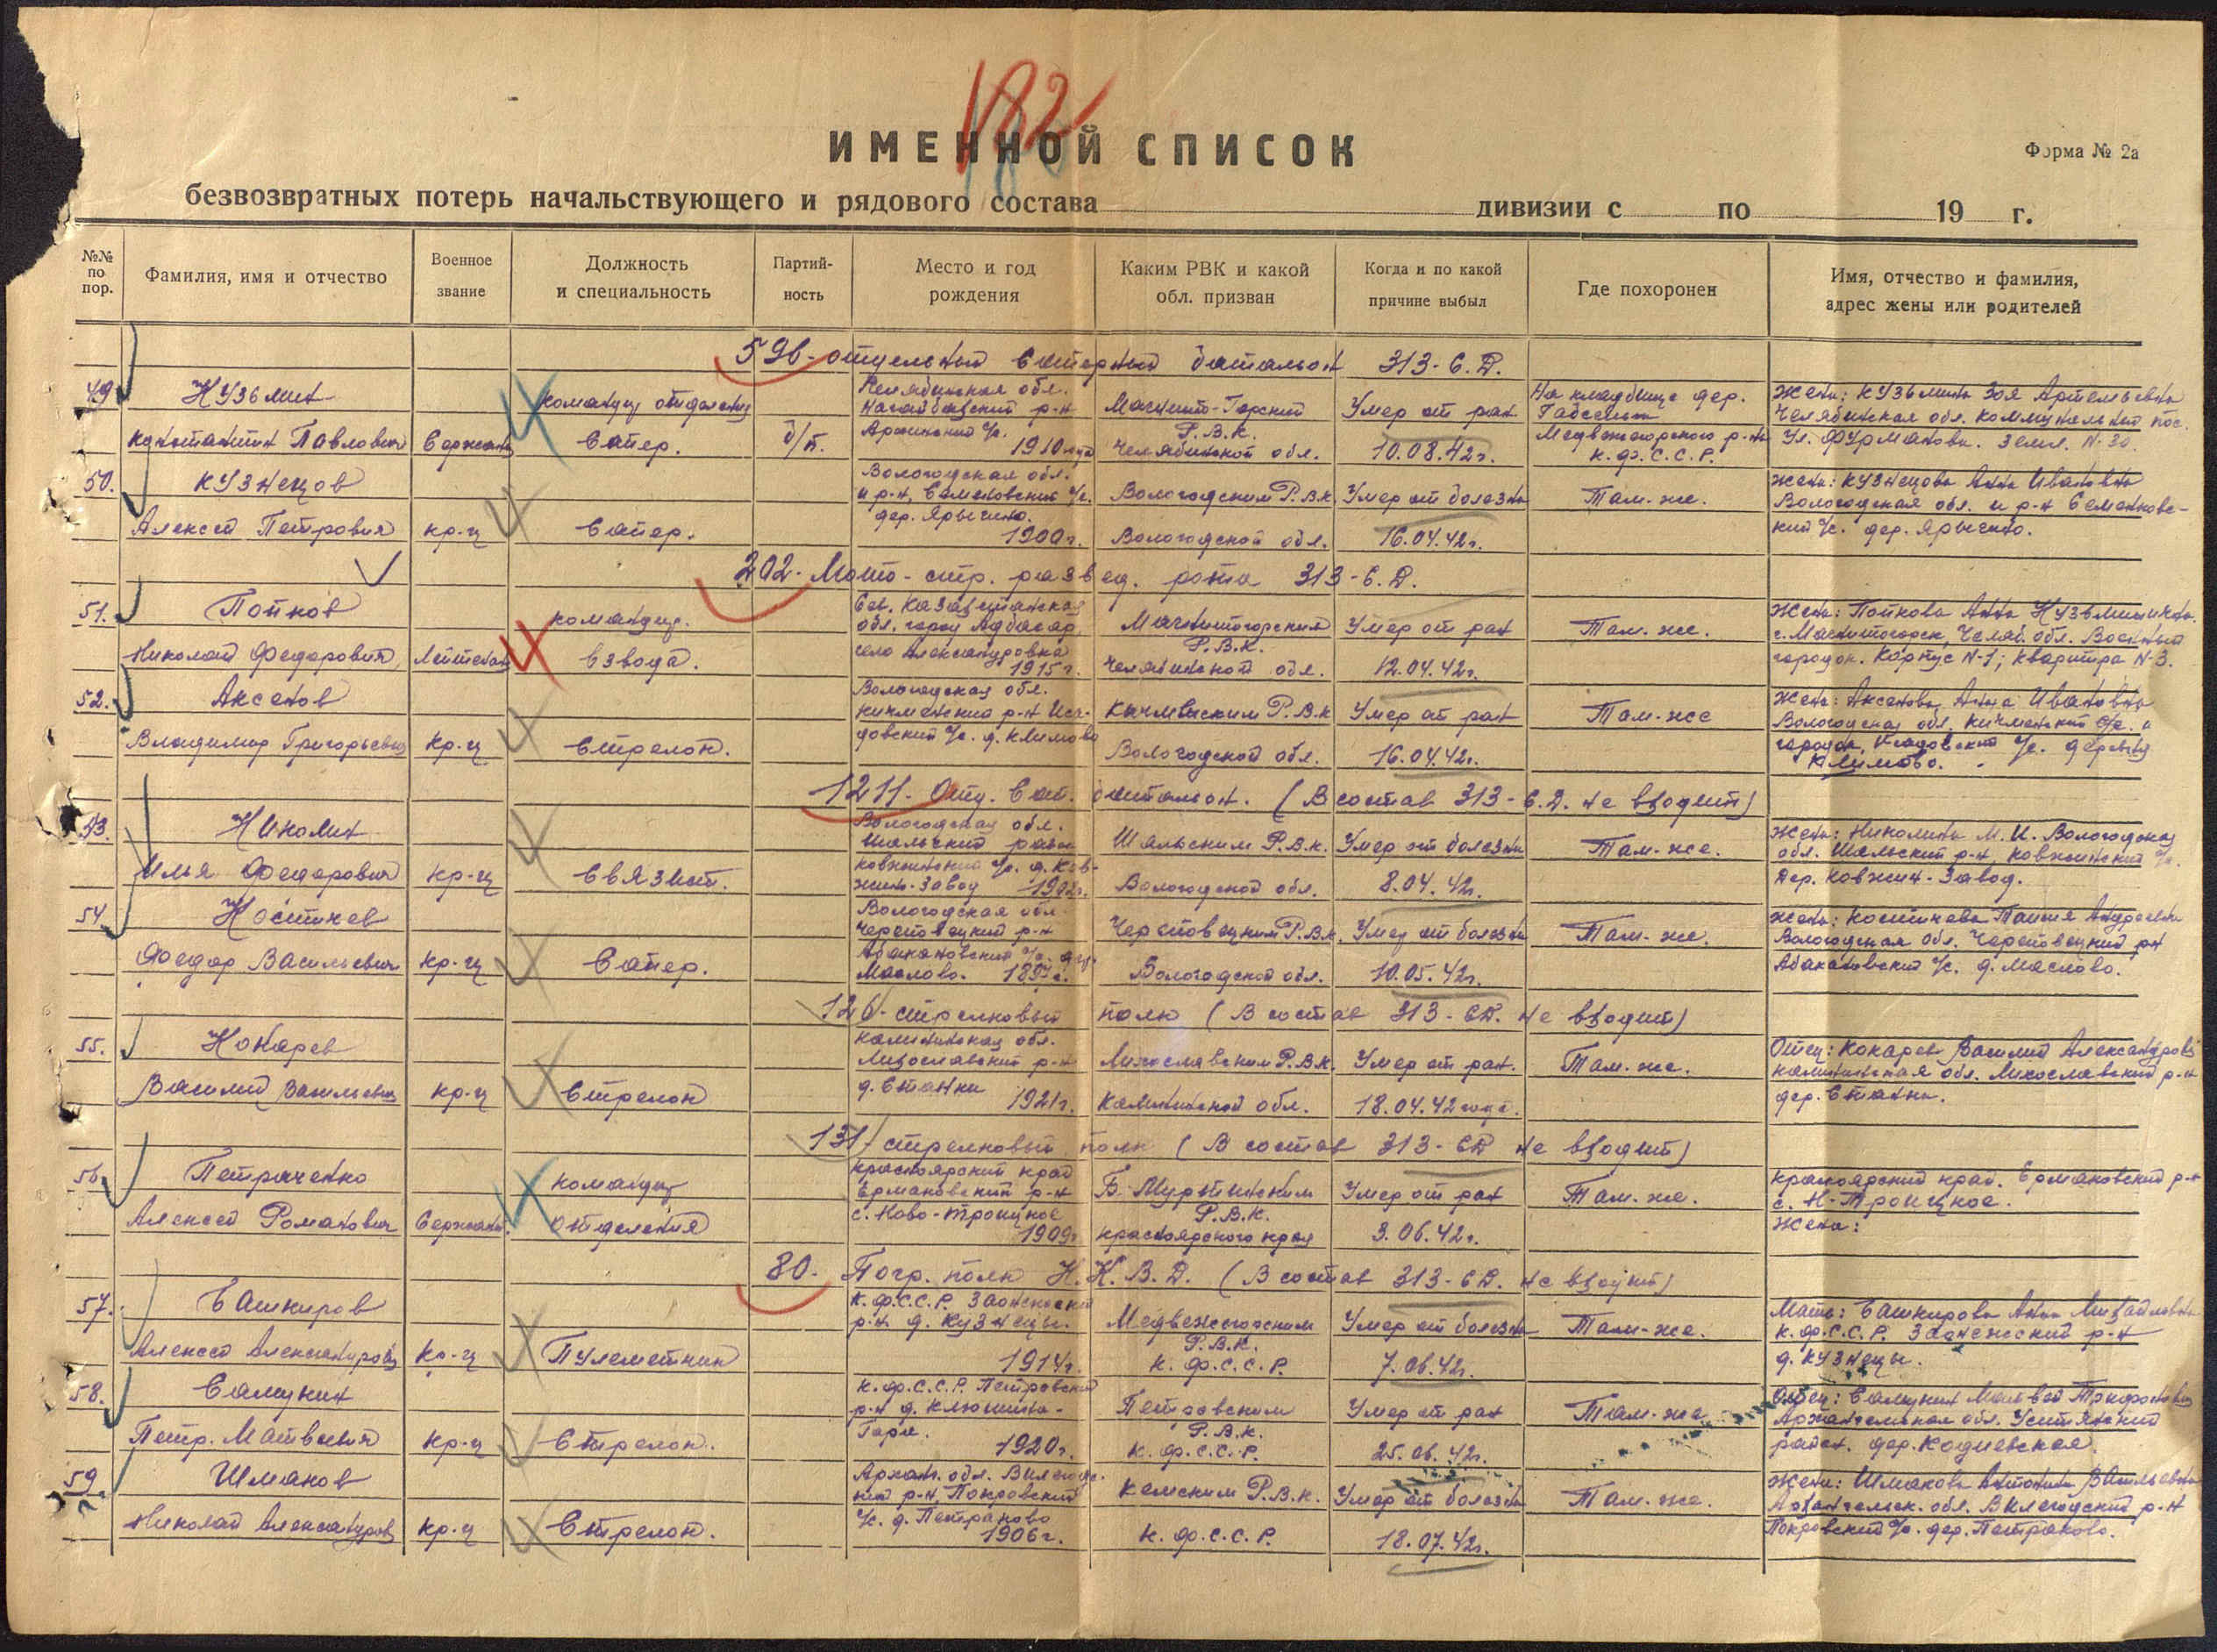 182
ИМЕННОЙ СПИСОК
Форма № 2а
безвозвратных потерь начальствующего и рядового состава дивизии с по 19 г.
№№ по пор.
Фамилия, имя и отчество
Военное звание
Должность и специальность
Партийность
Место и год рождения
Каким РВК и какой обл. призван
Когда и по какой причине выбыл
Где похоронен
Имя, отчество и фамилия, адрес жены или родителей
596- отдельный саперный батальон 313-С.Д.
49 Кузьмин
Константин Павлович
Сержант
командир отделения
Сапер.
б/п.
Челябинская обл.
Нагайбакский р-н
1910 года
Магнито-Горский
Р.В.К.
Челябинской обл.
Умер от ран
10.08.42г.
На кладбище дер.
Габсельга
Медвежегорского р-на
К.Ф.С.С.Р.
Жена: Кузьмина Зоя Артемьевна
Челябинская обл. Коммунальный пос.
Ул. Фурманова. Земл. N-30.
50. Кузнецов
Алексей Петрович
кр-ц
Сапер.
Вологодская обл.
и р-н, Семенковский с/с.
дер. Ярыгино.
1900г.
Вологодским Р.В.К.
Вологодской обл.
Умер от болезни
16.04.42г.
Там-же.
Жена: Кузнецова Анна Ивановна
Вологодская обл. и р-н Семенковс-
кий с/с. дер. Ярыгино.
202- Мото-стр. развед. рота 313-С.Д.
51. Попков
Николай Федорович
Лейтенант
командир.
взвода.
Сев. Казахстанская
обл. город Адбасар,
село Александровка
1915г.
Магнитогорский
Р.В.К.
Челябинской обл.
Умер от ран
12.04.42г.
Там-же.
Жена: Попкова Анна Кузьминична.
г. Магнитогорск, Челяб. обл. Военный
городок. Корпус N-1; квартира N-3.
52. Аксенов
Владимир Григорьевич
кр-ц
Стрелок.
Вологодская обл.
Кичменский р-н Иса-
довский с/с. д. Климово
Вологодской обл.
Умер от ран
16.04.42г.
Там-же
Жена: Аксенова Анна Ивановна
Вологодская обл. Кичменский
городок, Исадовский с/с. деревня
Климово.
1211- Отд. Сап. батальон. (В состав 313-С.Д. не входит)
53. Николин
Илья Федорович
кр-ц
Связист.
Вологодская обл.
Шольский район
Ковжинский с/с. д. Ков-
жин-Завод 1902г.
Шольским Р.В.К.
Вологодской обл.
Умер от болезни
8.04.42г.
Там-же.
Жена: Николина М. И. Вологодская
обл. Шольский р-н, Ковжинский с/с.
Дер. Ковжин-Завод.
54. Костичев
Федор Васильевич
кр-ц
Сапер.
Вологодская обл.
Череповецкий р-н
Абакановский с/с. дер.
Маслово.
Череповецким Р.В.К.
Вологодской обл.
Умер от болезни
10.05.42г.
Там-же.
Жена: Костичева Андреевна
Вологодская обл. Череповецкий р-н
Абакановский с/с. д. Маслово.
126- стрелковый полк (В состав 313-СД. не входит)
55. Кокарев
Василий Васильевич
кр-ц
Стрелок
Калининская обл.
Лихославский р-н
д. Станки
1921г.
Лихославским Р.В.К.
Калининской обл.
Умер от ран.
18.04.42 года.
Там-же.
Отец: Кокарев Василий Александрович
Калининская обл. Лихославский р-н
дер. Станки.
131- стрелковый полк (В состав 313-СД не входит)
56. Петраченко
Алексей Романович
Сержант.
командир
отделения
Красноярский край
Ермаковский р-н
с. Ново-Троицкое
1909г
Б-Муртинским
Р.В.К.
Красноярского края
Умер от ран
3.06.42г.
Там-же.
Красноярский край. Ермаковский р-н
с. Н-Троицкое.
Жена:
80- Погр. полк Н.К.В.Д. (В состав 313-СД. не входит)
57. Башкиров
Алексей Александрович
кр-ц
Пулеметчик
К.Ф.С.С.Р. Заонежский
р-н д. Кузнецы.
1914г.
Медвежегорским
Р.В.К.
К.Ф.С.С.Р.
Умер от болезни
7.06.42г.
Там-же.
Мать: Башкирова Анна Михайловна
К.Ф.С.С.Р. Заонежский р-н
д. Кузнецы.
58. Самушин
Петр. Матвеевич
кр-ц
Стрелок.
К.Ф.С.С.Р. Петровский
р-н д. Клюшина-
Гора.
1920г.
Петровским
Р.В.К.
К.Ф.С.С.Р.
Умер от ран
25.06.42г.
Там-же
Отец: Самушин Матвей Трифонович
Архангельская обл. Устьянский
район. дер. Кодиевская.
59. Шмаков
Николай Александров
кр-ц
Стрелок.
Арханг. обл. Вилегодс-
кий р-н, Покровский
с/с. д. Петраково
1906г.
Кемским Р.В.К.
К.Ф.С.С.Р.
Умер от болезни
18.07.42г.
Там-же.
Жена: Шмакова Антонина Васильевна
Архангельск. обл. Вилегодский р-н
Покровский с/с. дер. Петраково.